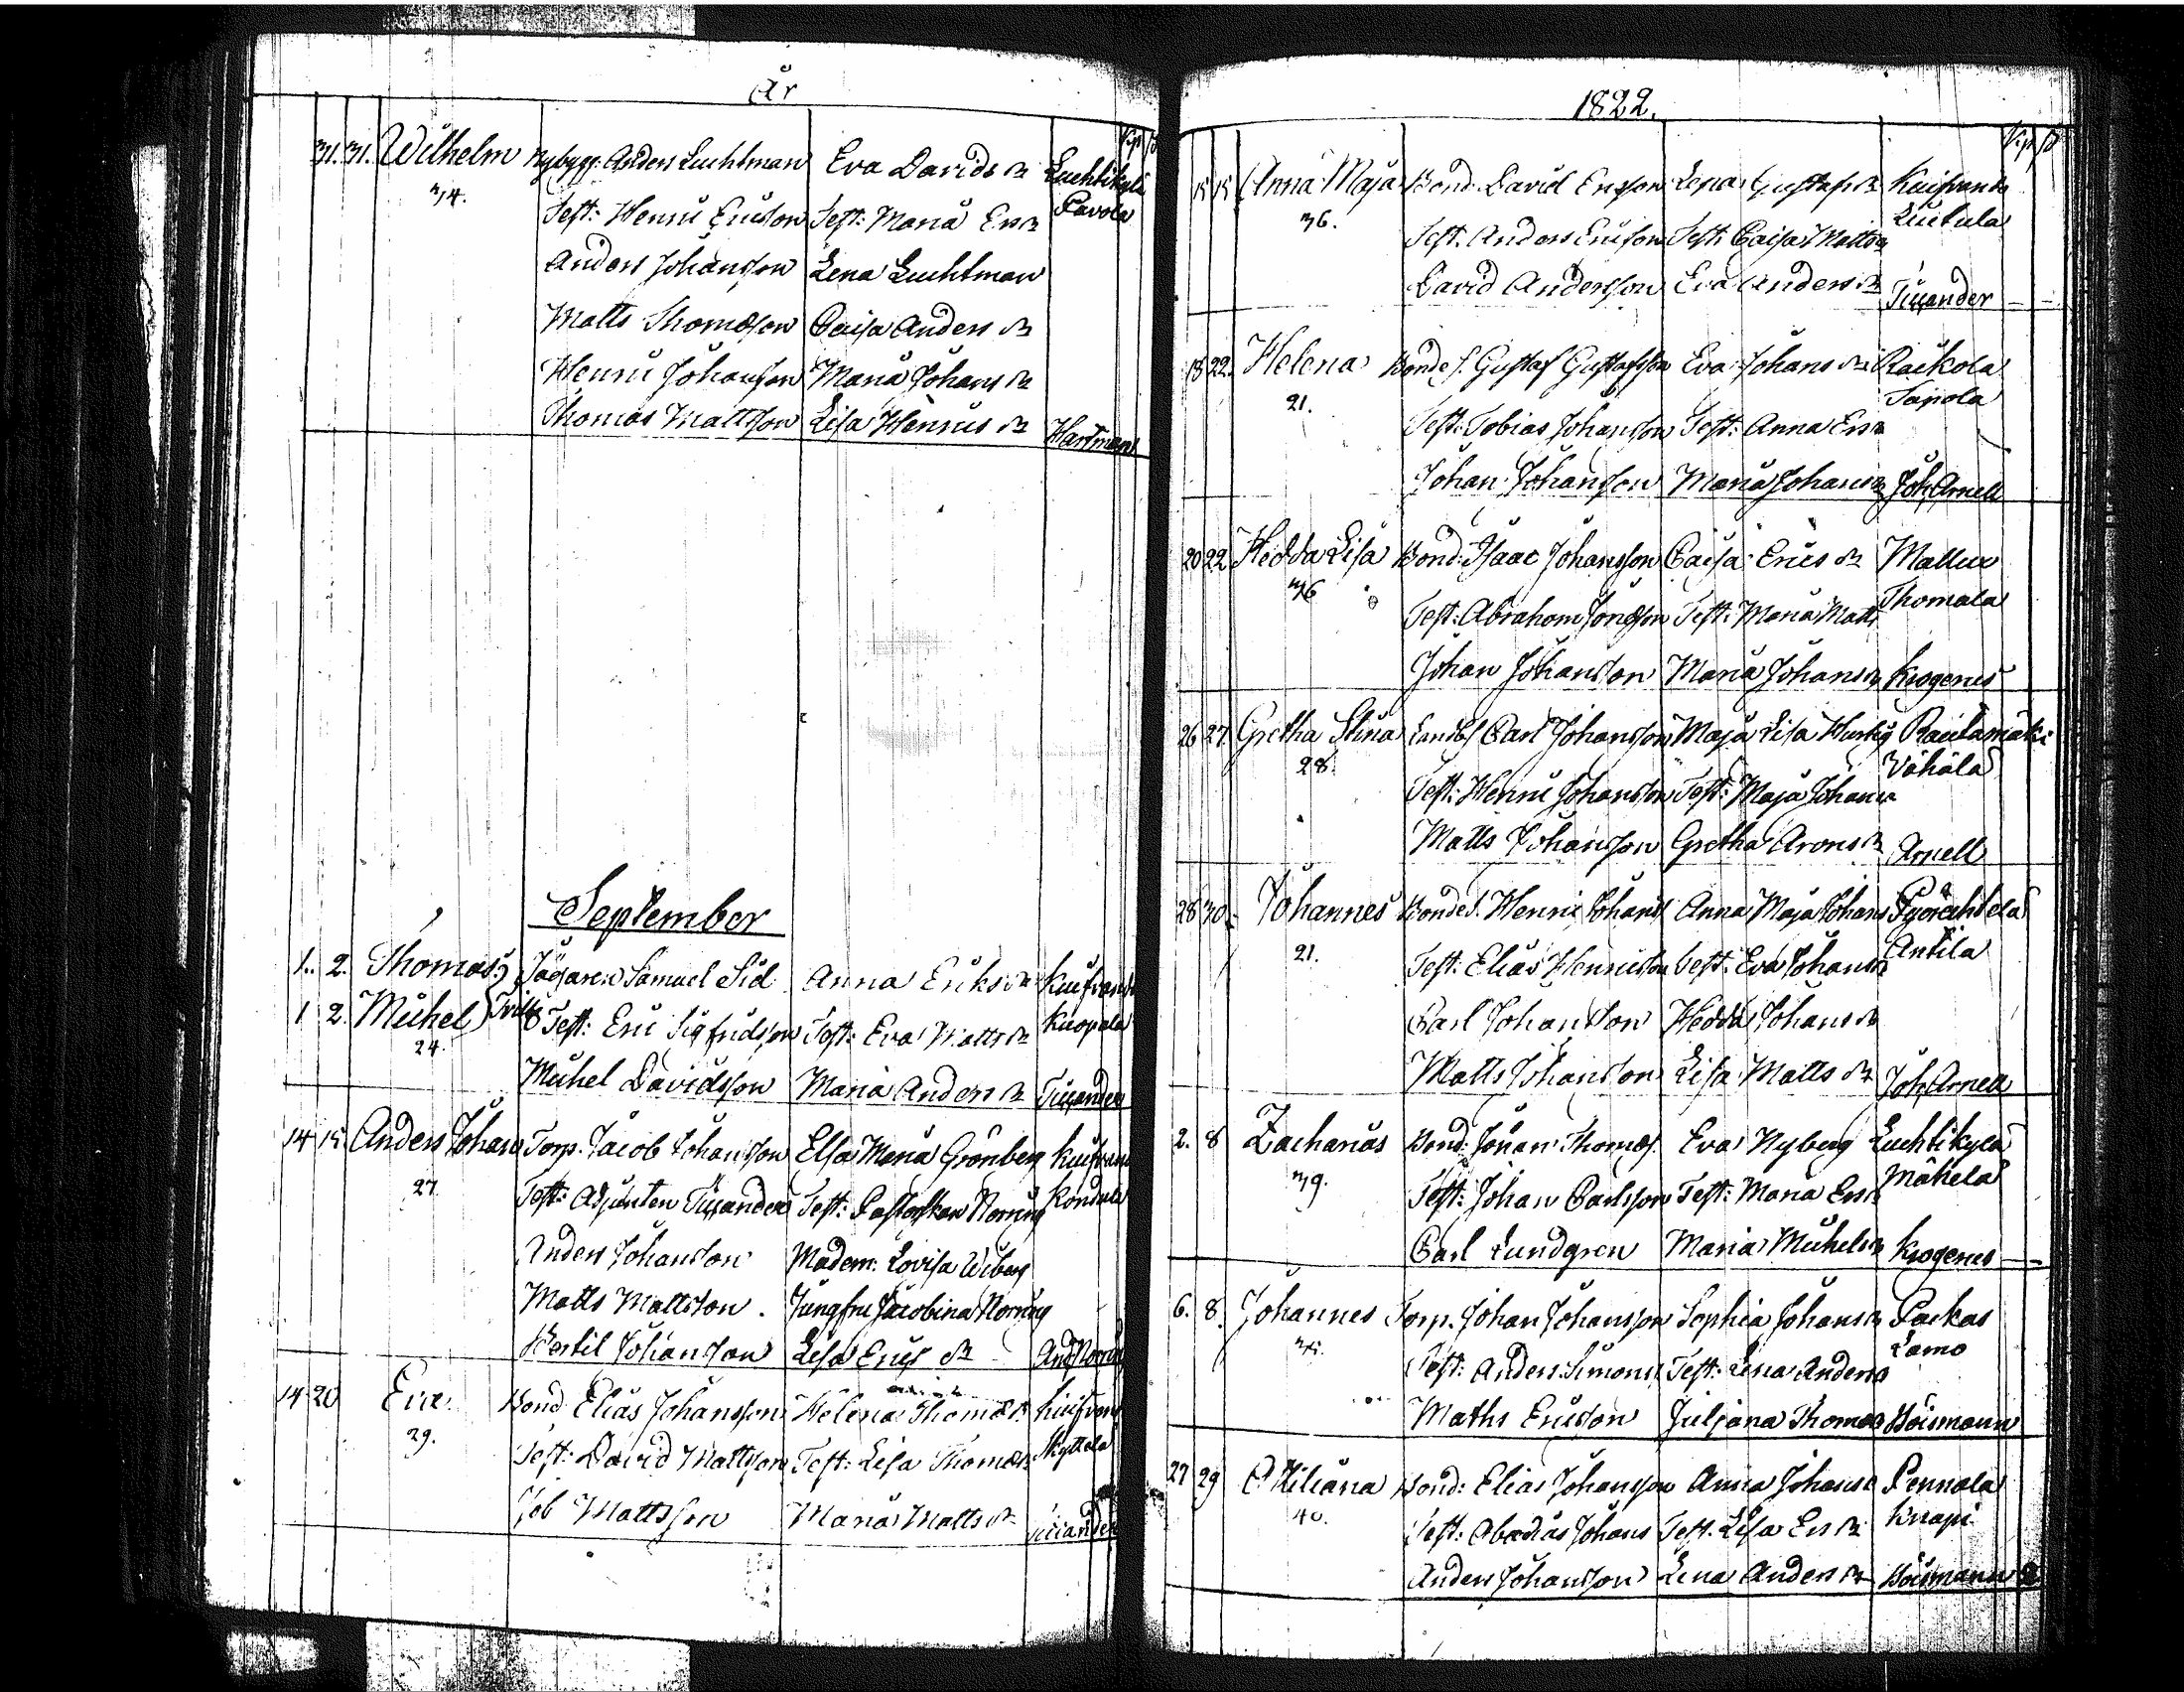 År
31. 31. Wilhelm Nybygg: Anders Luchtman Eva Davids dr Luchtikylä
34. Test: Henric Ericsson Test: Maria Ers dr Pavola
Anders Johansson Lena Luchtman
Matts Thomasson Caisa Anders dr
Henric Johansson Maria Johans dr
Thomas Mattsson Lisa Henrics dr Hartman
September
1. 2. Thomas Jägaren Samuel Sid Anna Eriks dr
1 2. Michel Test: Eric Sigfridsson Test: Eva Matts dr Kuopala
24.
Michel Davidsson Maria Anders dr Ticcander
14 15. Anders Johan Torp. Jacob Johansson Elsa Maria Grönberg
27. Test: Adjuncten Ticcander Test: Pastorskan Norring
Anders Johansson Madem: Lovisa Wiberg
Matts Mattsson. Jungfru Jacobina Norring
Bertil Johansson Lisa Erics dr And Norring
14 20 Eva Bond Elias Johansson Helena Thomas dr
29. Test: David Mattsson Test: Lisa Thomas dr Skyttelä
Job Mattsson Maria Matts dr Ticcander
1822.
15 15 Anna Maja Bond: David Ersson Lena Gustafs dr
36. Test. Anders Ericsson Test: Caisa Matts dr
David Andersson Eva Anders dr Ticcander
18 22. Helena Bonde S. Gustaf Gustafsson Eva Johans dr Raickola
21. Test: Tobias Johansson Test: Anna Ers dr Tapola
Johan Johansson Maria Johans dr Joh. Arnell
20 22 Hedda Lisa Bond: Isaac Johansson Caisa Erics dr Mallux
36 Test: Abraham Jonsson Test: Maria Matts Thomala
Johan Johansson Maria Johans dr Krogerus
26 27. Gretha Stina Carl Johansson Maja Lisa Rautamäki
28. Test: Henric Johansson Test: Maja Johans dr Vähälä
Matts Johansson Gretha Arons dr Arnell
28 30. Johannes Bonde S. Henric Johans Anna Maja Johans
21. Test: Elias Henricsson Test: Eva Johans dr Antila
Carl Johansson Hedda Johans dr
Matts Johansson Lisa Matts dr Joh. Arnell
2. 8 Zacharias Bond: Johan Thomas. Eva Nyberg Luchtikylä
39. Test: Johan Carlsson Test: Maria Ers dr Mäkelä
Carl Lundgren Maria Michels dr Krogerus
6. 8. Johannes Torp. Johan Johansson Sophia Johans dr Packas
Test: Anders Simons Test: Lena Anders dr Lamo
Maths Ericsson Juliana Thomas Höismann
27 29 Ottiliana Bond: Elias Johansson Anna Johans Pennala
40. Test: Abadias Johans Test. Lisa Ers dr Knapi
Anders Johansson Lena Anders dr Höismann